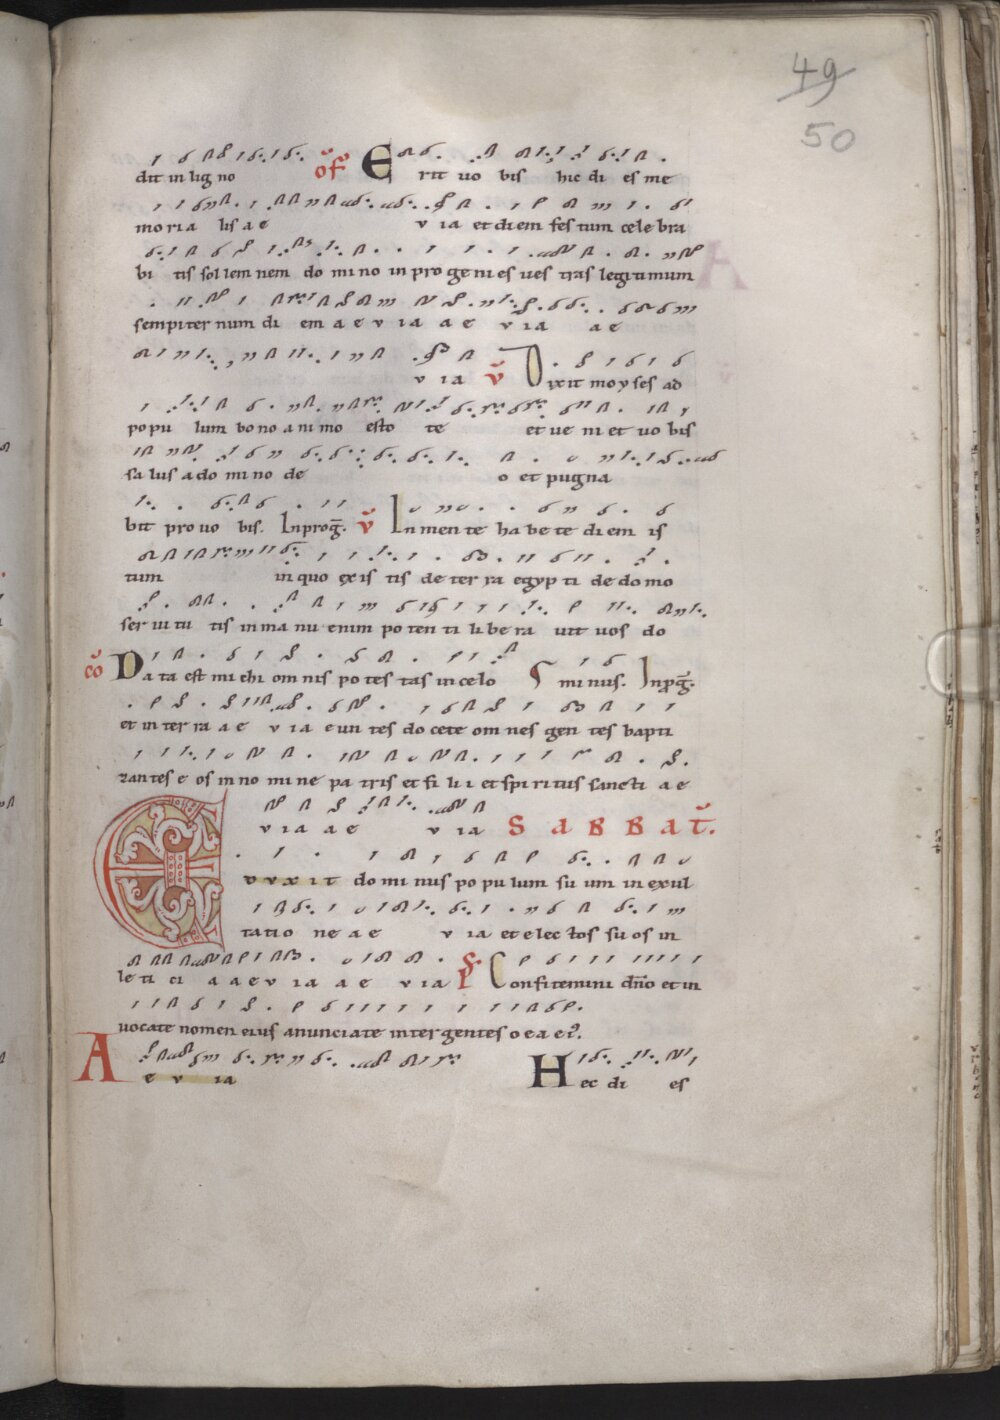 49
50
dit in lig no of E rit vo bis hic di es me
mo ria lis a e v ia et diem fes tum cele bra
bi tis sol lem nem do mi no in pro ge ni es ves tras legitimum
sempiter num di em a e v ia a e v ia a e
v ia v Dixit moyses ad
popu lum bono a ni mo esto te et ve ni et vo bis
sa lus a do mi no de o et pugna
bit pro vo bis. Inprog. v In men te ha be te di em is
tum in quo exis tis de ter ra egyp ti de do mo
ser vi tu tis in ma nu enim po ten ti li be ra vit vos do
co Da ta est mi chi om nis po tes tas in celo minus. Inprog.
et in ter ra a e v ia e un tes do cete om nes gen tes bapti
zantes e os in no mi ne pa tris et fi li i et spi ritus sancti a e
v ia a e v ia SABBAT.
EDVXIT do mi nus po pu lum su um in exul
tatio ne a e v ia et elec tos su os in
le ti ci a a e v ia a e v ia Confitemini dno et in
vocate nomen eius anunciate inter gentes o e a e?.
A e v ia Hec di es